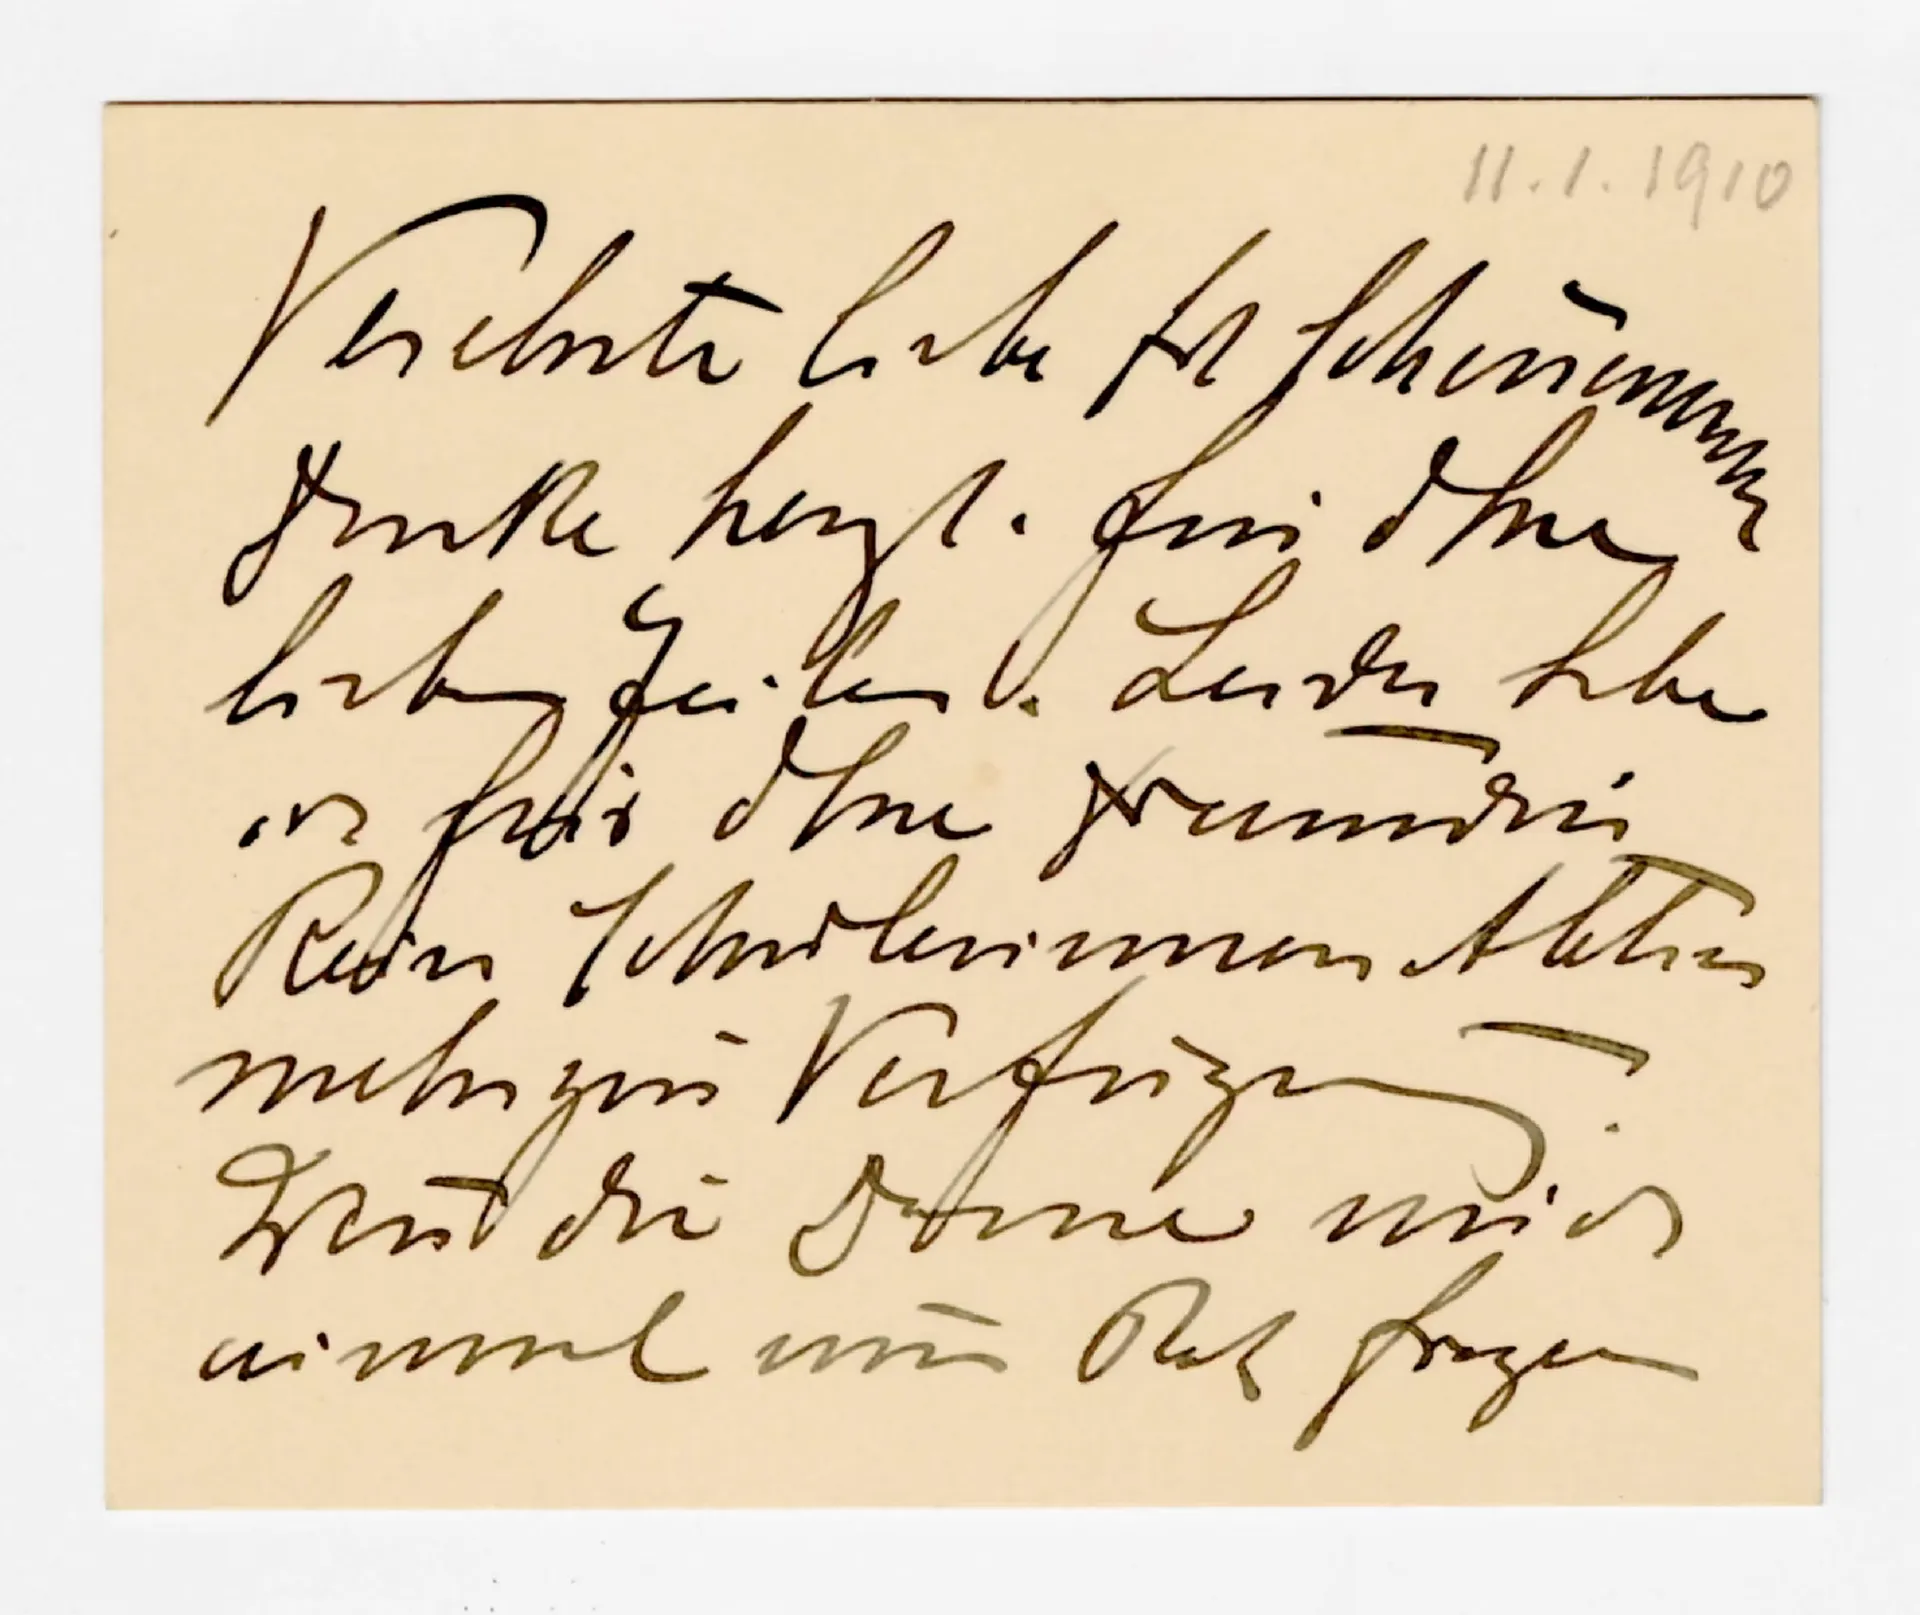 11.1.1910
Verehrte liebe Frl Scheinemann
Danke herzl. für Ihre
lieben Zeilen. Leider habe
ich für Ihre Freundin
Kein Schülerinnen Atelier
mehr zur Verfügung.
die Dame mich
einmal um Rat fragen